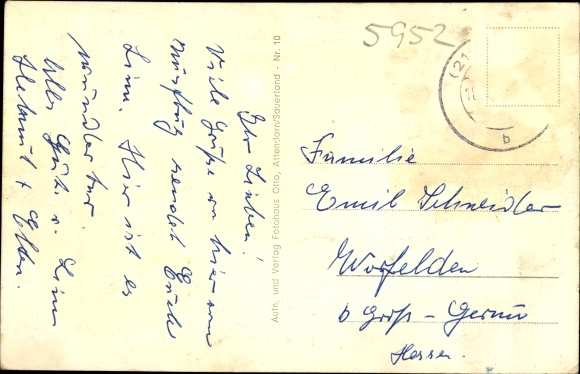 Ihr Lieben!
Viele Grüße von hier vom
Ausflug sendet Euch
Linn. Hier ist es
wunderbar.
Alles Gute v. Linn
Helmut + Ellen.
Aufn. und Verlag Fotohaus Otto, Attendorn/Sauerland - Nr. 10
5952
(21
b
Familie
Emil Schneider
Worfelden
b Groß-Gerau
Hessen.